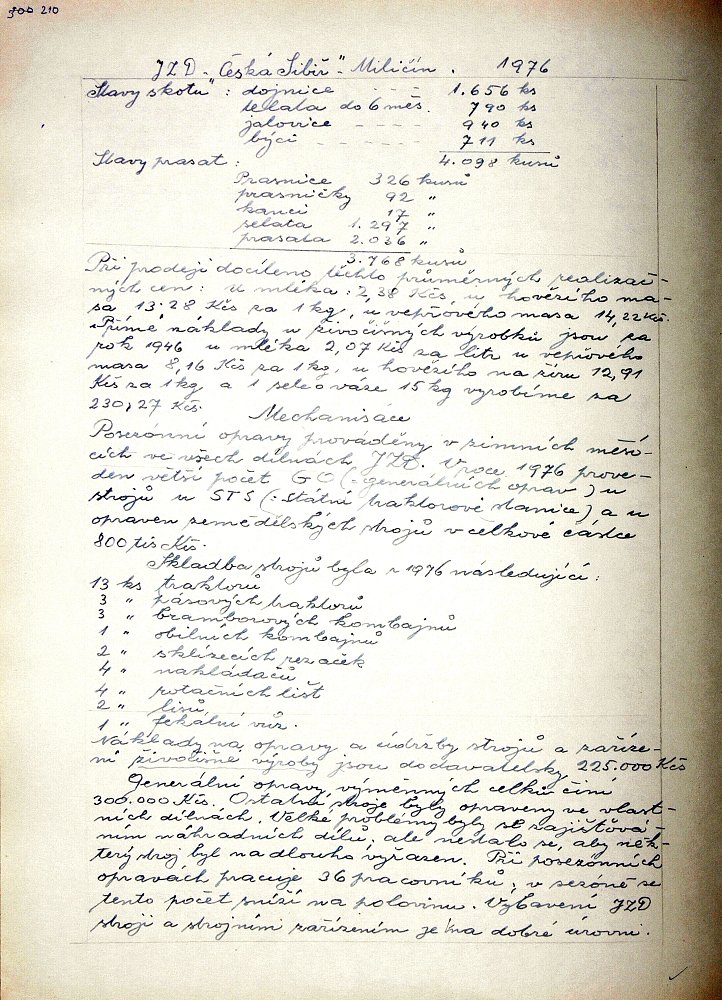 300 210
JZD - "Česká Sibiř" - Miličín. 1976
Stavy skotu: dojnice - - - 1.656 ks
telata do 6 měs. 790 ks
jalovice - - - 940 ks
býci - - - - - - 711 ks
4.098 kusů
Stavy prasat:
Prasnice 326 kusů
prasničky 92 "
kanci 17 "
selata 1.297 "
prasata 2.036 "
3.768 kusů
Při prodeji docíleno těchto průměrných realizač-
ných cen: u mléka: 2,38 Kčs, u hovězího ma-
sa 13.28 Kčs za 1 kg, u vepřového masa 14,22 Kčs.
Přímé náklady u živočišných výrobků jsou za
rok 1946 u mléka 2,07 Kčs za litr u vepřového
masa 8,16 Kčs za 1 kg, u hovězího na žíru 12,91
Kčs za 1 kg a 1 sele o váze 15 kg vyrobíme za
230,27 Kčs.
Mechanisáce
Posezónní opravy prováděny v zimních měsí-
cích ve všech dílnách JZD. V roce 1976 prove-
den větší počet GO (:-generálních oprav) u
strojů u STS (:-státní traktorové stanice) a u
opraven zemědělských strojů v celkové částce
800 tis Kčs.
Skladba strojů byla r 1976 následující:
13 ks traktorů
3 " pásových traktorů
3 " bramborových kombajnů
1 " obilních kombajnů
2 " sklízecích řezaček
4 " nakládačů
4 " rotačních lišt
2 " lisů,
1 " fekální vůz.
Náklady na opravy a údržby strojů a zaříze-
ní živočišné výroby jsou dodavatelsky 225.000 Kčs
Generální opravy, výměnných celků činí
300.000 Kčs. Ostatní stroje byly opraveny ve vlast-
ních dílnách. Velké problémy byly se zajišťová-
ním náhradních dílů, ale nestalo se, aby něk-
terý stroj byl nadlouho vyřazen. Při posezónních
opravách pracuje 36 pracovníků, v sezóně se
tento počet sníží na polovinu. Vybavení JZD
stroji a strojním zařízením je na dobré úrovni.